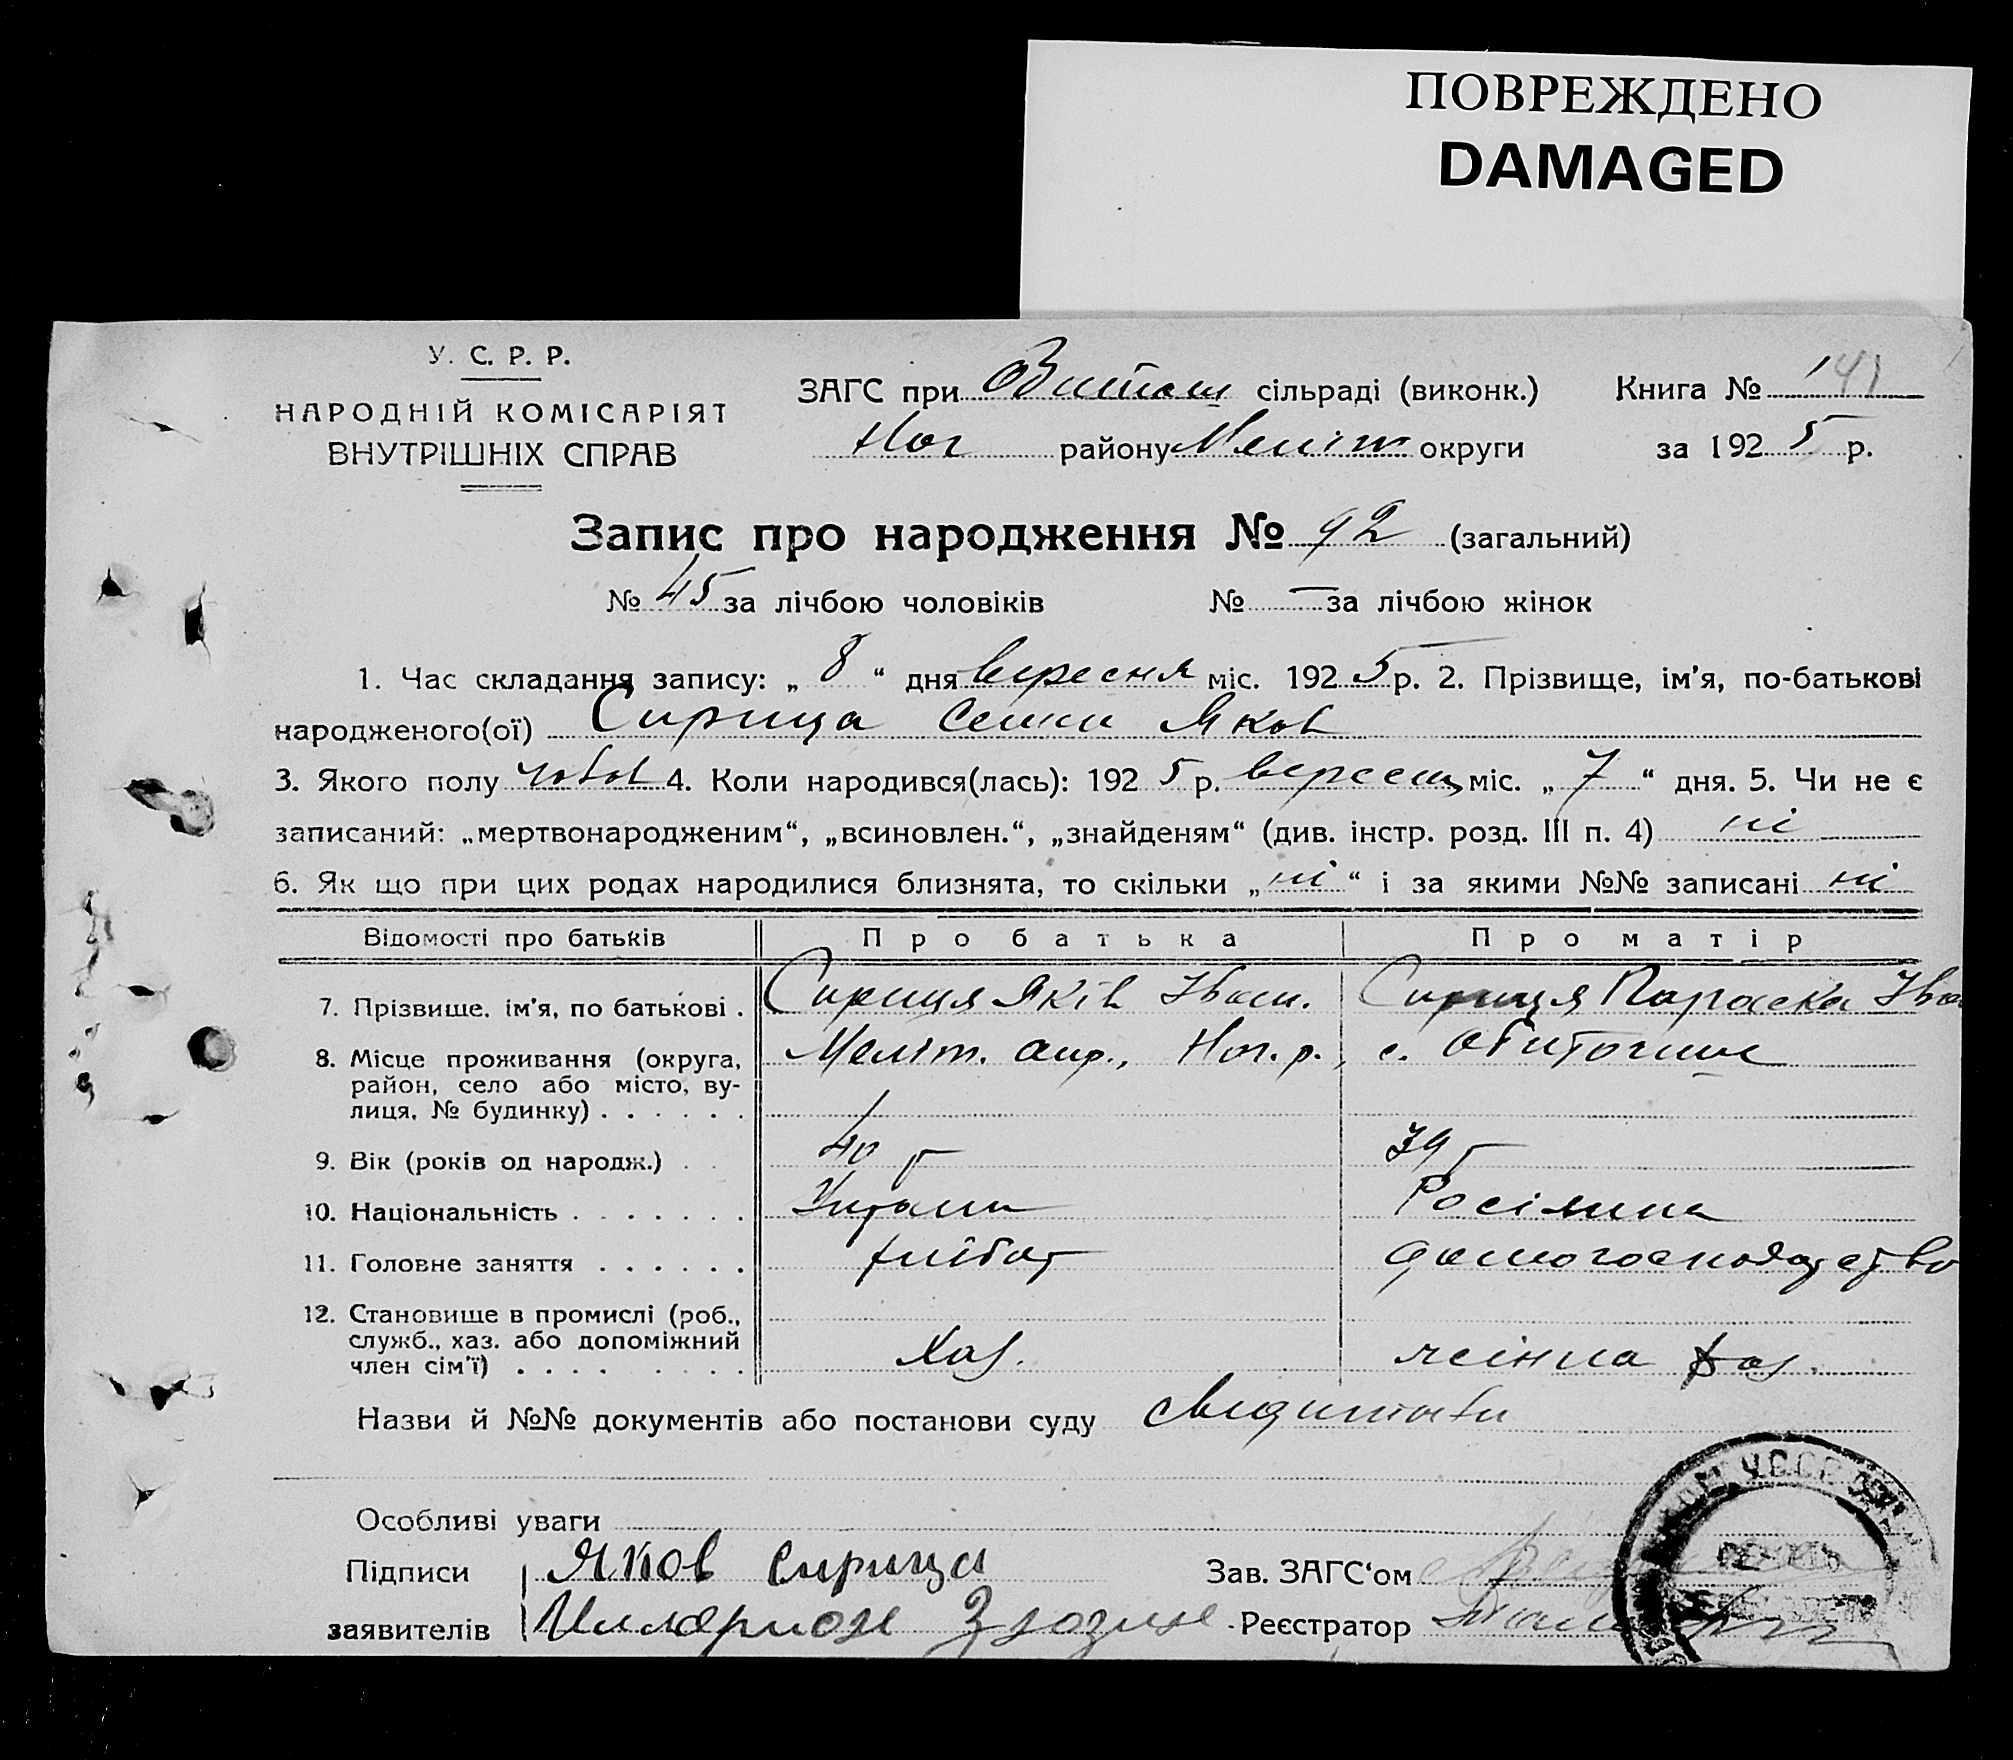 ПОВРЕЖДЕНО
DAMAGED
У. С. Р. Р.
НАРОДНІЙ КОМІСАРІЯТ
ВНУТРІШНІХ СПРАВ
ЗАГС при сільраді (виконк.)
Ног району Меліт округи
Книга № 141
за 1925 р.
Запис про народження № 92 (загальний)
№ 45 за лічбою чоловіків № — за лічбою жінок
1. Час складання запису: „ 8 “ дня вересня міс. 1925 р. 2. Прізвище, ім’я, по-батькові
народженого(ої) Сириця Семен Яков
3. Якого полу чолов 4. Коли народився(лась): 1925 р. вересня міс. „ 7 “ дня. 5. Чи не є
записаний: „мертвонародженим“, „всиновлен.“, „знайденям“ (див. інстр. розд. III п. 4) ні
6. Як що при цих родах народилися близнята, то скільки „ ні “ і за якими №№ записані ні
Відомості про батьків Про батька Про матір
7. Прізвище, ім’я, по батькові . Сириця Яків Іван. Сириця Параска Іва
8. Місце проживання (округа, Меліт. окр., Ног. р., с. Обиточне
район, село або місто, ву-
лиця, № будинку) . . . . . .
9. Вік (років од народж.) . . 40 р 39 р
10. Національність . . . . . . . Україн Росіянка
11. Головне заняття . . . . . . хлібор домогосподарство
12. Становище в промислі (роб.,
служб., хаз. або допоміжний
член сім’ї) . . . . . . . Хаз. хаз.
Назви й №№ документів або постанови суду
Особливі уваги
Підписи Яков Сирица
Зав. ЗАГС‘ом
заявителів Иларион
Реєстратор